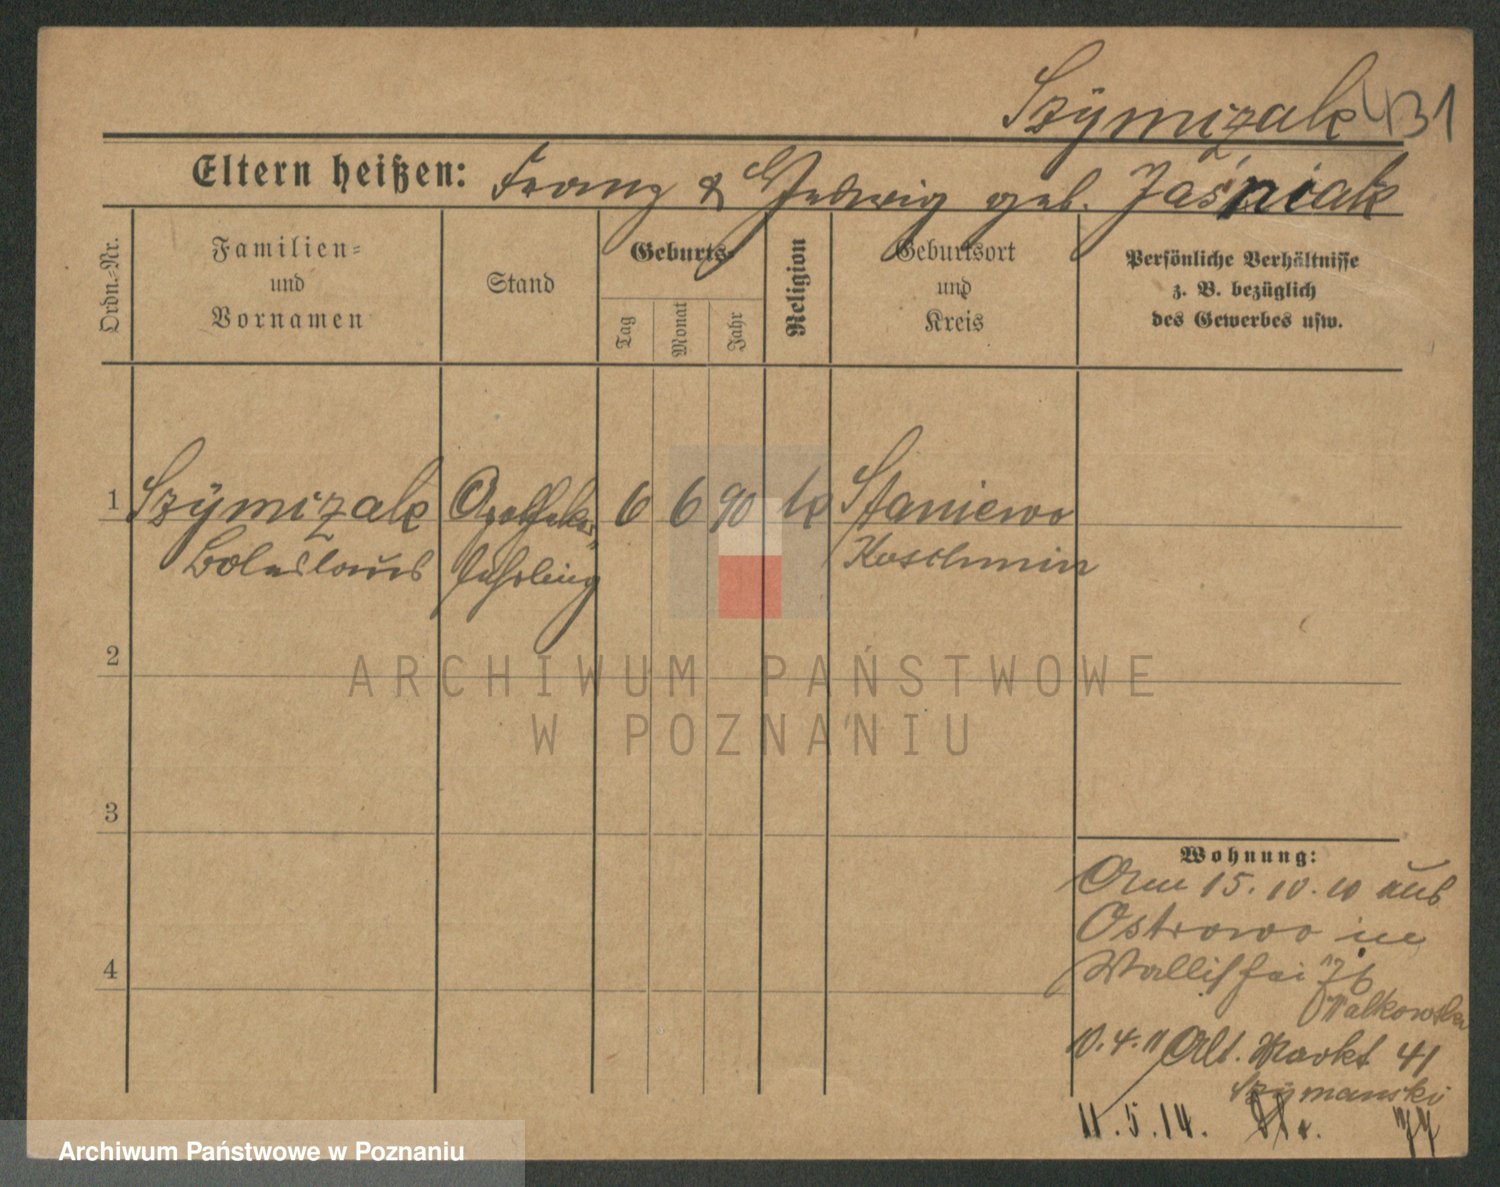 Szÿmczak 431
Eltern heißen: Franz & Hedwig geb. Jaśniak
Ordn.-Nr.
Familien-
und
Vornamen
Stand
Geburts-
Tag
Monat
Jahr
Religion
Geburtsort
und
Kreis
Persönliche Verhältnisse
z. B. bezüglich
des Gewerbes usw.
1 Szÿmczak Apotheker 6 6 90 k Staniewo
Boleslaus lehrling Koschmin
2
ARCHIWUM PAŃSTWOWE
W POZNANIU
3
Wohnung:
Am 15.10.10 aus
Ostrowo in
4
Wallischei 76
Walkowska
10.4.11 Alt. Markt 41
Szÿmanski
11.5.14.
Archiwum Państwowe w Poznaniu